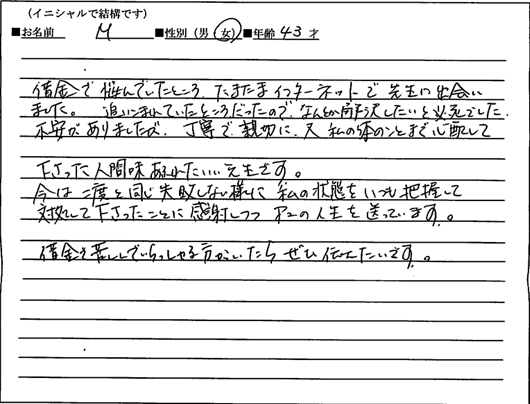 (イニシャルで結構です)
■お名前 M ■性別(男・女)■年齢 43才
借金で悩んでいたところ たまたまインターネットで先生に出会い
ました。 追いこまれていたところだったので、なんとか解決したいと必死でした。
不安がありましたが、丁寧で、親切に、又 私の体のことまで心配して
下さった人間味あふれたいい先生です。
今は二度と同じ失敗しない様に 私の状態をいつも把握して
対処して下さったことに感謝しつつ 第二の人生を送っています。
借金で苦しんでいらっしゃる方がいたら ぜひ伝えたいです。